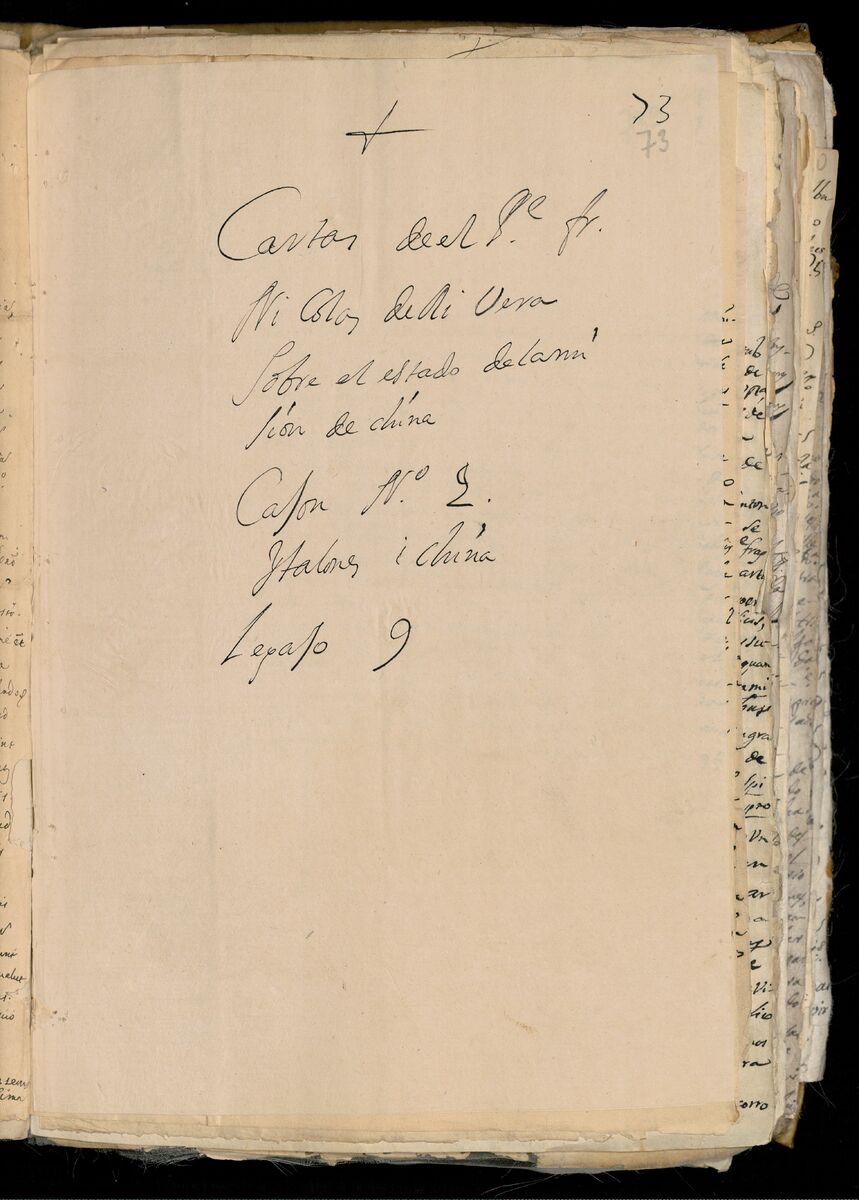 73
73
+
Cartas de el P.e fr.
Nicolas de Ri Vera
Sobre el estado de la mi
sion de china
Cason N.o 2.
Ytalones i china
Legaso 9